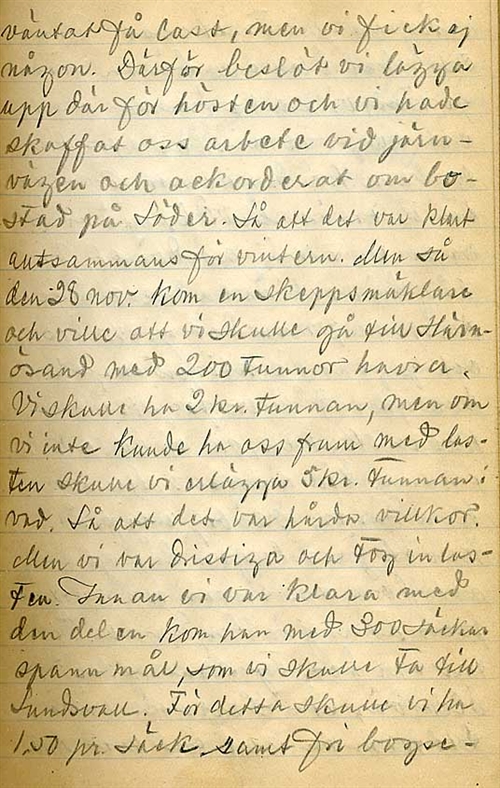 väntat få last, men vi fick ej
någon. Därför beslöt vi lägga
upp där för hösten och vi hade
skaffat oss arbete vid järn-
vägen och ackorderat om bo-
stad på Söder. Så att det var klart
alltsammans för vintern. Men så
den 28 nov. kom en skeppsmäklare
och ville att vi skulle gå till Härn-
ösand med 200 tunnor havra.
Vi skulle ha 2 kr. tunnan, men om
vi inte kunde ha oss fram med las-
ten skulle vi erlägga 5 kr. tunnan i
vad. Så att det var hårda villkor.
Men vi var dristiga och tog in las-
ten. Innan vi var klara med
den delen kom han med 300 säckar
spannmål, som vi skulle ta till
Sundsvall. För detta skulle vi ha
1,50 pr. säck samt fri bogse-